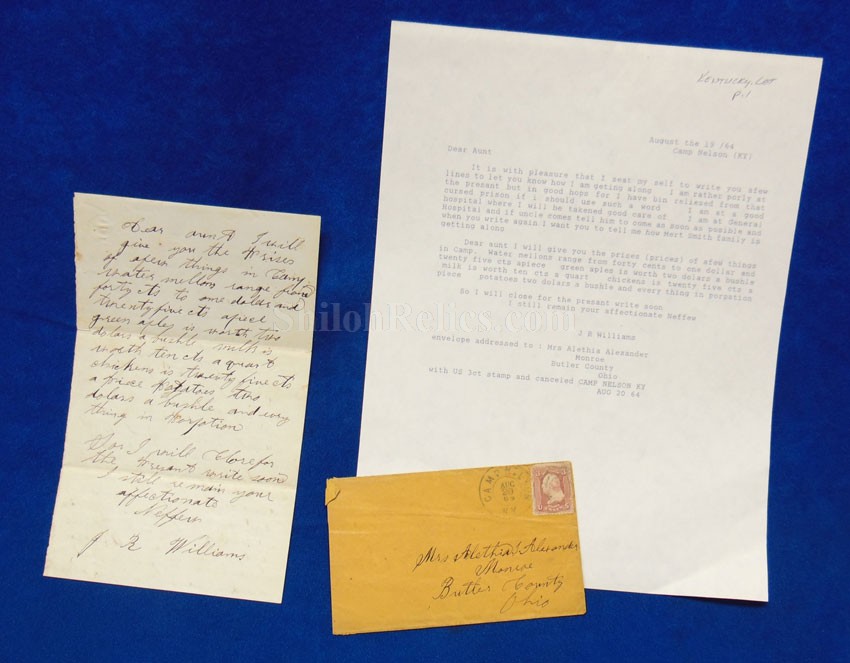 Dear aunt I will
give you the prises
of afew things in Camp
water mellons range from
forty cts to one dolar and
twenty five cts apiece
green aples is worth two
dolars a bushle milk is
worth ten cts a quart
chickens is twenty five cts
a piece potatoes two
dolars a bushle and every
thing in porpation
So I will Close for
the presant write soon
I still remain your
affectionate
Neffew
J R Williams
Kentucky,
P.1
August the 19 /64
Camp Nelson (KY)
Dear Aunt
It is with pleasure that I seat my self to write you afew
lines to let you know how I am getting along I am rather porly at
the presant but in good hops for I have bin relieved from that
cursed prison if i should use such a word I am at a good
hospital where I will be takened good care of I am at General
Hospital and if uncle comes tell him to come as soon as posible and
when you write again I want you to tell me how Mert Smith family is
getting alond
Dear aunt I will give you the prices (prices) of afew things
in Camp. Water mellons range from forty cents to one dollar and
twenty five cts apiece green aples is worth two dolars a bushle
milk is worth ten cts a quart chickens is twenty five cts a
piece potatoes two dolars a bushle and every thing in porpation
So I will close for the presant write soon
I still remain your affectionate Neffew
J R Williams
envelope addressed to : Mrs Alethia Alexander
Monroe
Butler County
Ohio
with US 3ct stamp and canceled CAMP NELSON KY
AUG 20 64
ShilohRelics.com
CAMP
Mrs Alethia Alexander
Monroe
Butler County
Ohio